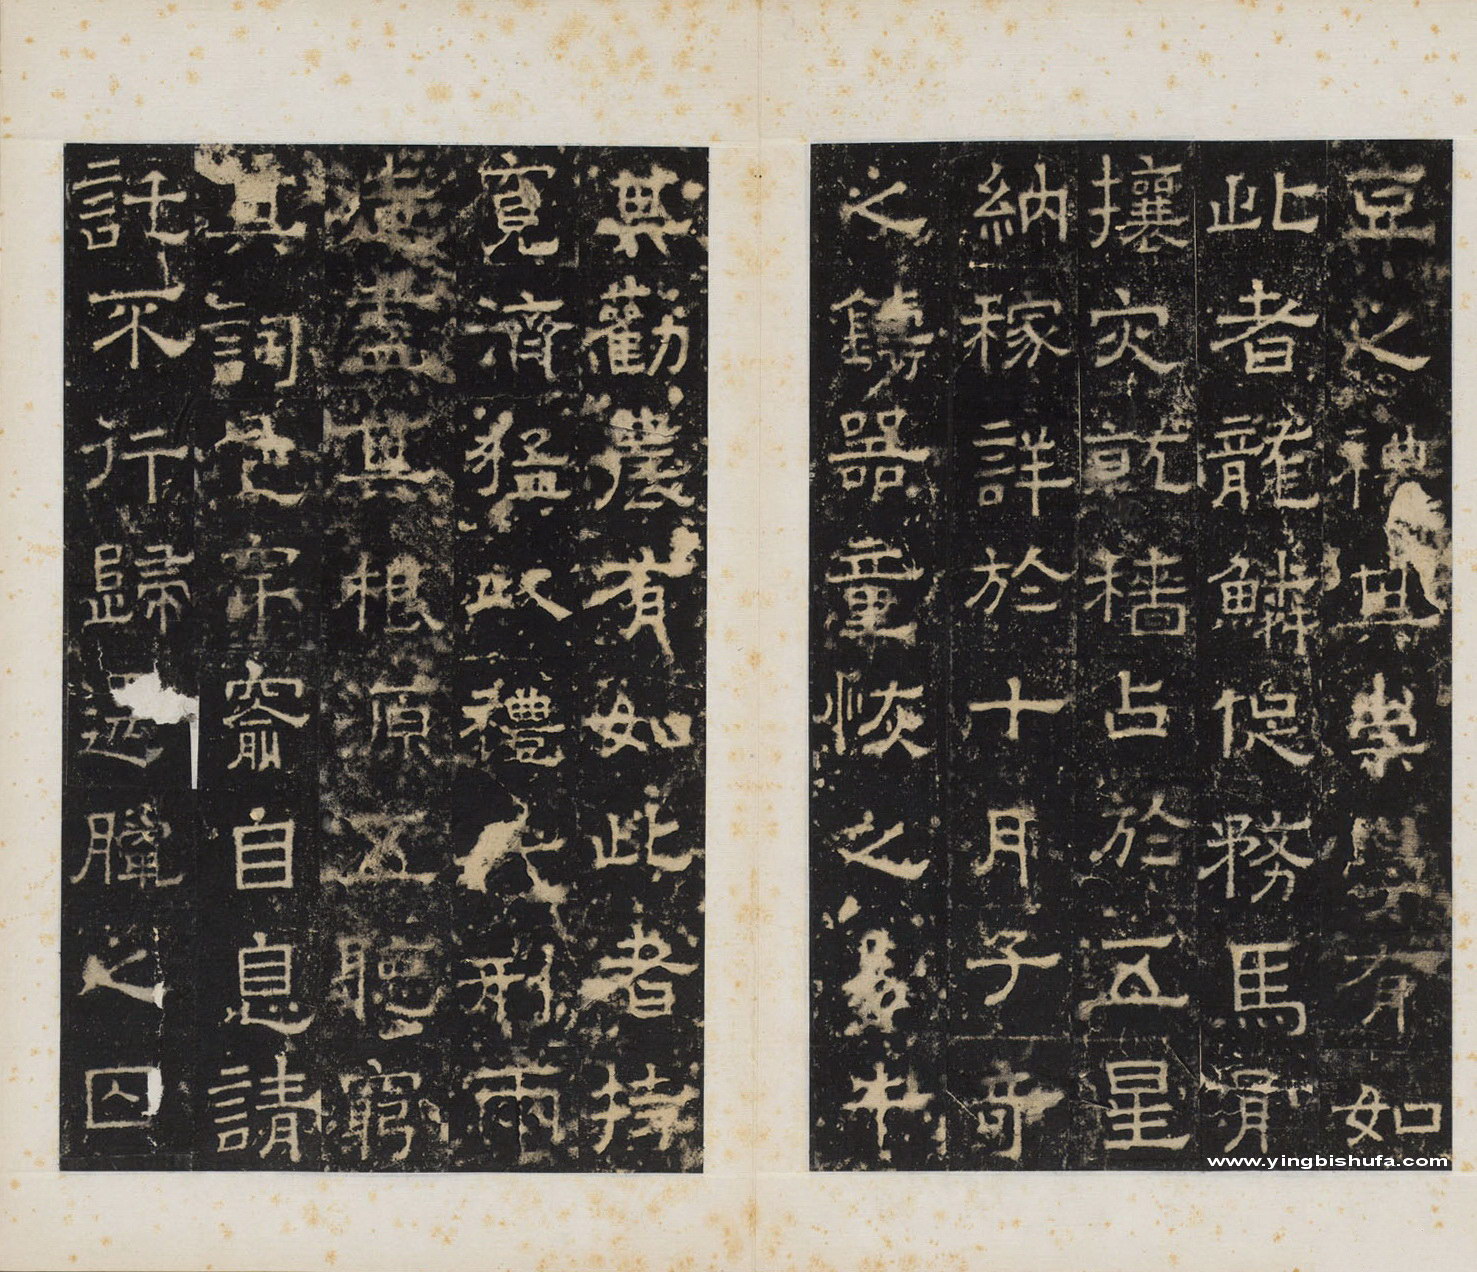 豆之禮崇學有如
此者龍鱗促務馬骨
攘灾就穡占於五星
納稼詳於十月子奇
之鑄器童恢之喜牛
其勸農有如此者持
寬濟猛政禮刑兩
造盡其根原五聽窮
其詞色宗窬自息請
託不行歸臘之囚
www.yingbishufa.com